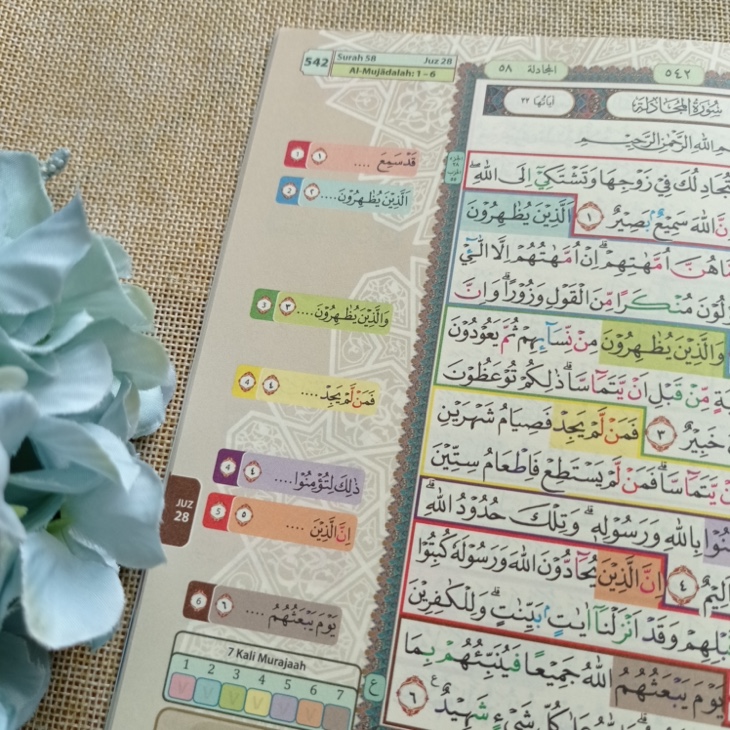 542
Surah 58 Juz 28
Al-Mujādalah: 1 – 6
المجادلة ٥٨
٥٤٢
اٰياتها ٢٢
سُورَةُ المُجَادلَة
1 ١ قَدْ سَمِعَ ....
2 ٢ اَلَّذِيْنَ يُظٰهِرُوْنَ....
3 ٣ وَالَّذِيْنَ يُظٰهِرُوْنَ....
4 ٤ فَمَنْ لَّمْ يَجِدْ....
4 ٤ ذٰلِكَ لِتُؤْمِنُوْا....
5 ٥ اِنَّ الَّذِيْنَ ....
6 ٦ يَوْمَ يَبْعَثُهُمُ ....
JUZ
28
7 Kali Murajaah
1 2 3 4 5 6 7
اللهِ الرَّحْمٰنِ الرَّحِيْمِ
فِيْ زَوْجِهَا وَتَشْتَكِيْٓ اِلَى اللّٰهِ ۖ
اللّٰهَ سَمِيْعٌۢ بَصِيْرٌ ١ اَلَّذِيْنَ يُظٰهِرُوْنَ
هُنَّ اُمَّهٰتِهِمْۗ اِنْ اُمَّهٰتُهُمْ اِلَّا الّٰـِٔيْ
مُنْكَرًا مِّنَ الْقَوْلِ وَزُوْرًاۗ وَاِنَّ
وَالَّذِيْنَ يُظٰهِرُوْنَ مِنْ نِّسَاۤىِٕهِمْ ثُمَّ يَعُوْدُوْنَ
مِّنْ قَبْلِ اَنْ يَّتَمَاۤسَّاۗ ذٰلِكُمْ تُوْعَظُوْنَ
خَبِيْرٌ ٣ فَمَنْ لَّمْ يَجِدْ فَصِيَامُ شَهْرَيْنِ
يَّتَمَاۤسَّاۗ فَمَنْ لَّمْ يَسْتَطِعْ فَاِطْعَامُ سِتِّيْنَ
بِاللّٰهِ وَرَسُوْلِهٖۗ وَتِلْكَ حُدُوْدُ اللّٰهِۗ
٤ اِنَّ الَّذِيْنَ يُحَاۤدُّوْنَ اللّٰهَ وَرَسُوْلَهٗ كُبِتُوْا
وَقَدْ اَنْزَلْنَآ اٰيٰتٍۢ بَيِّنٰتٍۗ وَلِلْكٰفِرِيْنَ
يَوْمَ يَبْعَثُهُمُ اللّٰهُ جَمِيْعًا فَيُنَبِّئُهُمْ بِمَا
عَلٰى كُلِّ شَيْءٍ شَهِيْدٌ ࣖ ٦
ع